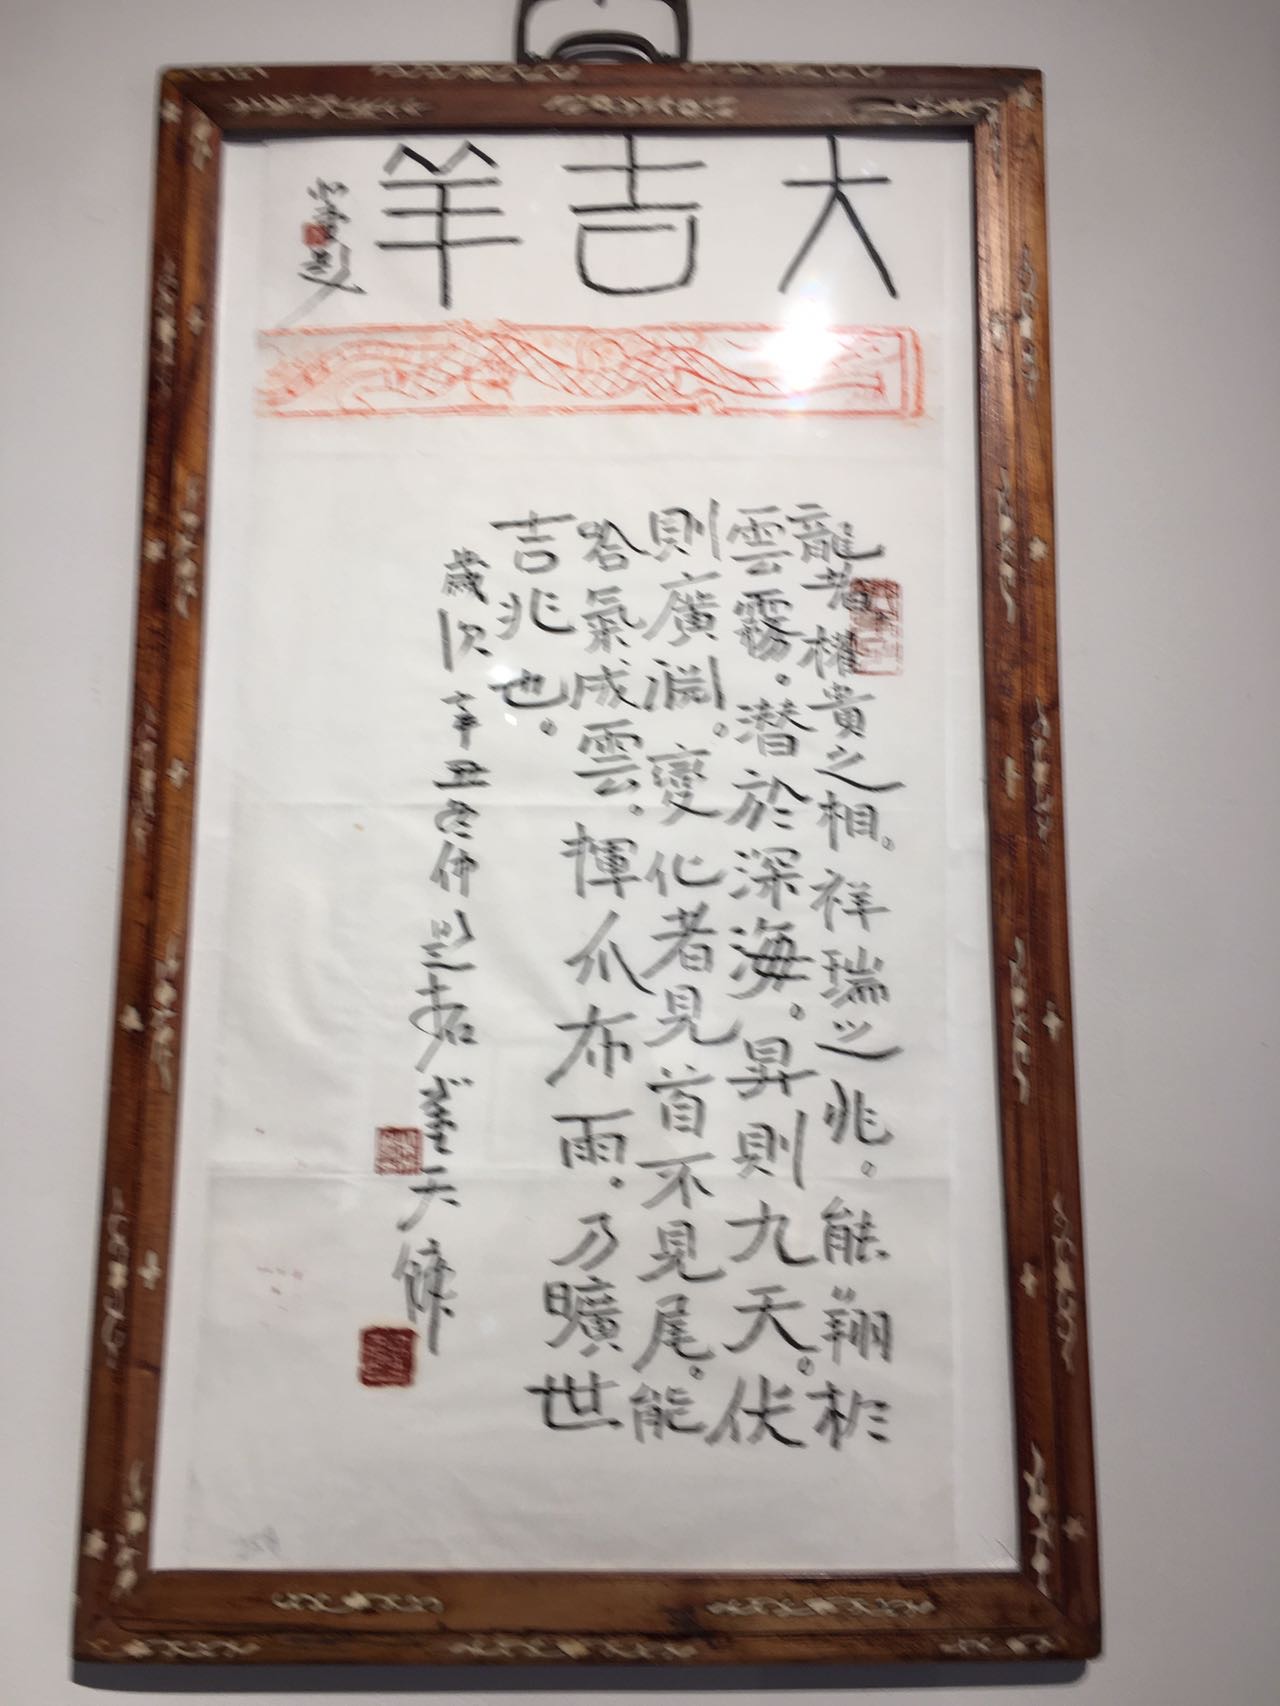 大吉羊
龍者權貴之相。祥瑞之兆。能翔於
雲霧。潛於深海。昇則九天。伏
則廣淵。變化者見首不見尾。能
哈氣成雲。揮爪布雨。乃曠世
吉兆也。
歲次辛丑冬仲